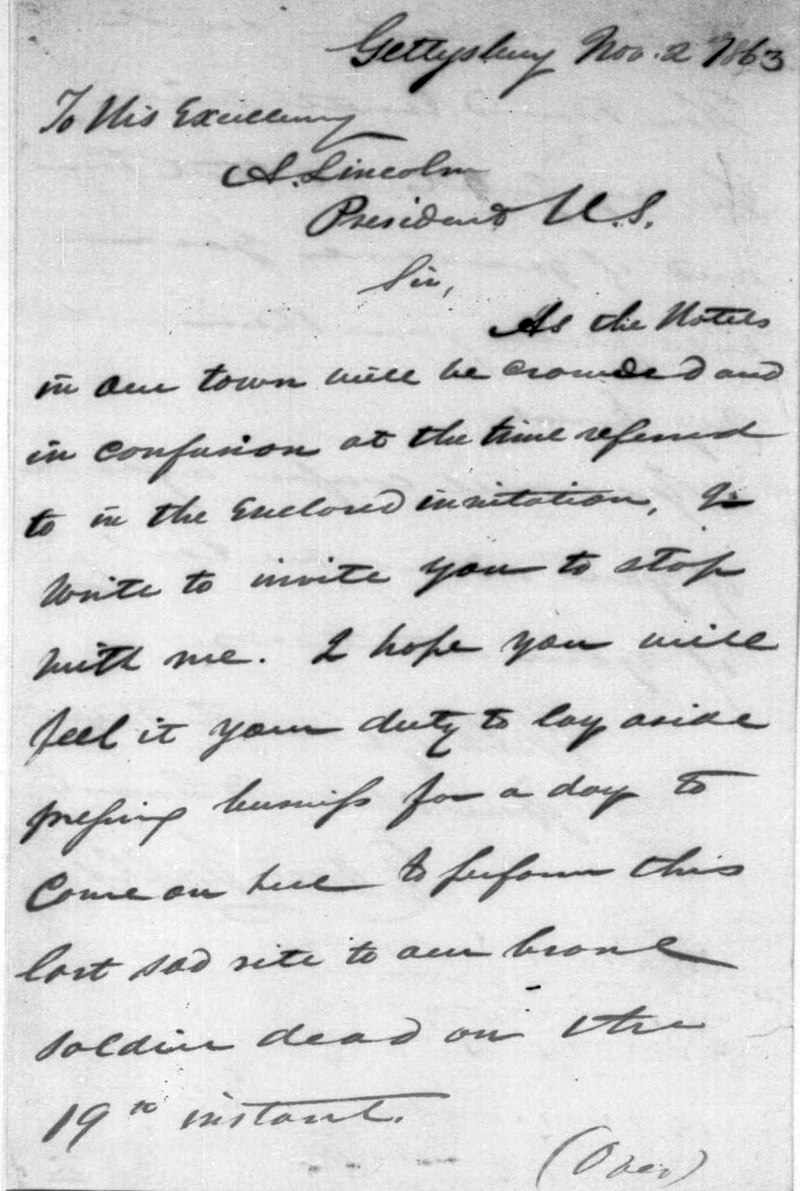 Gettysburg Nov. 2 1863
To His Excellency
A. Lincoln
President U.S.
Sir,
As the Hotels
in our town will be crowded and
in confusion at the time referred
to in the Enclosed invitation, I
write to invite you to stop
with me. I hope you will
feel it your duty to lay aside
pressing business for a day to
Come on here to perform this
last sad rite to our brave
soldier dead on the
19th instant.
(Over)